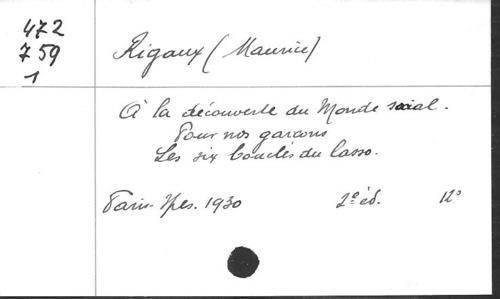 472
759
1
Rigaux (Maurice)
A la découverte du Monde social.
Pour nos garcons
Les six boucles du lasso.
Paris-Spes. 1930 2e éd. 12°